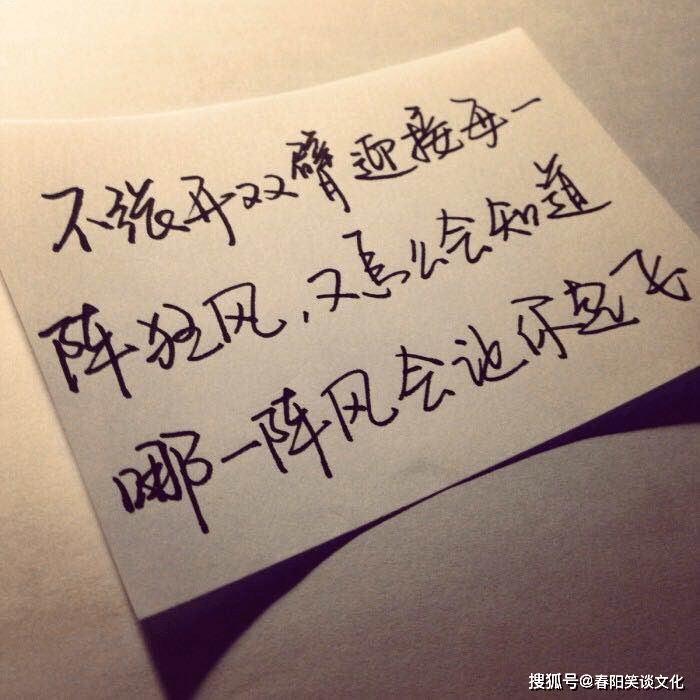 不张开双臂迎接每一
阵狂风，又怎么会知道
哪一阵风会让你起飞
搜狐号@春阳笑谈文化